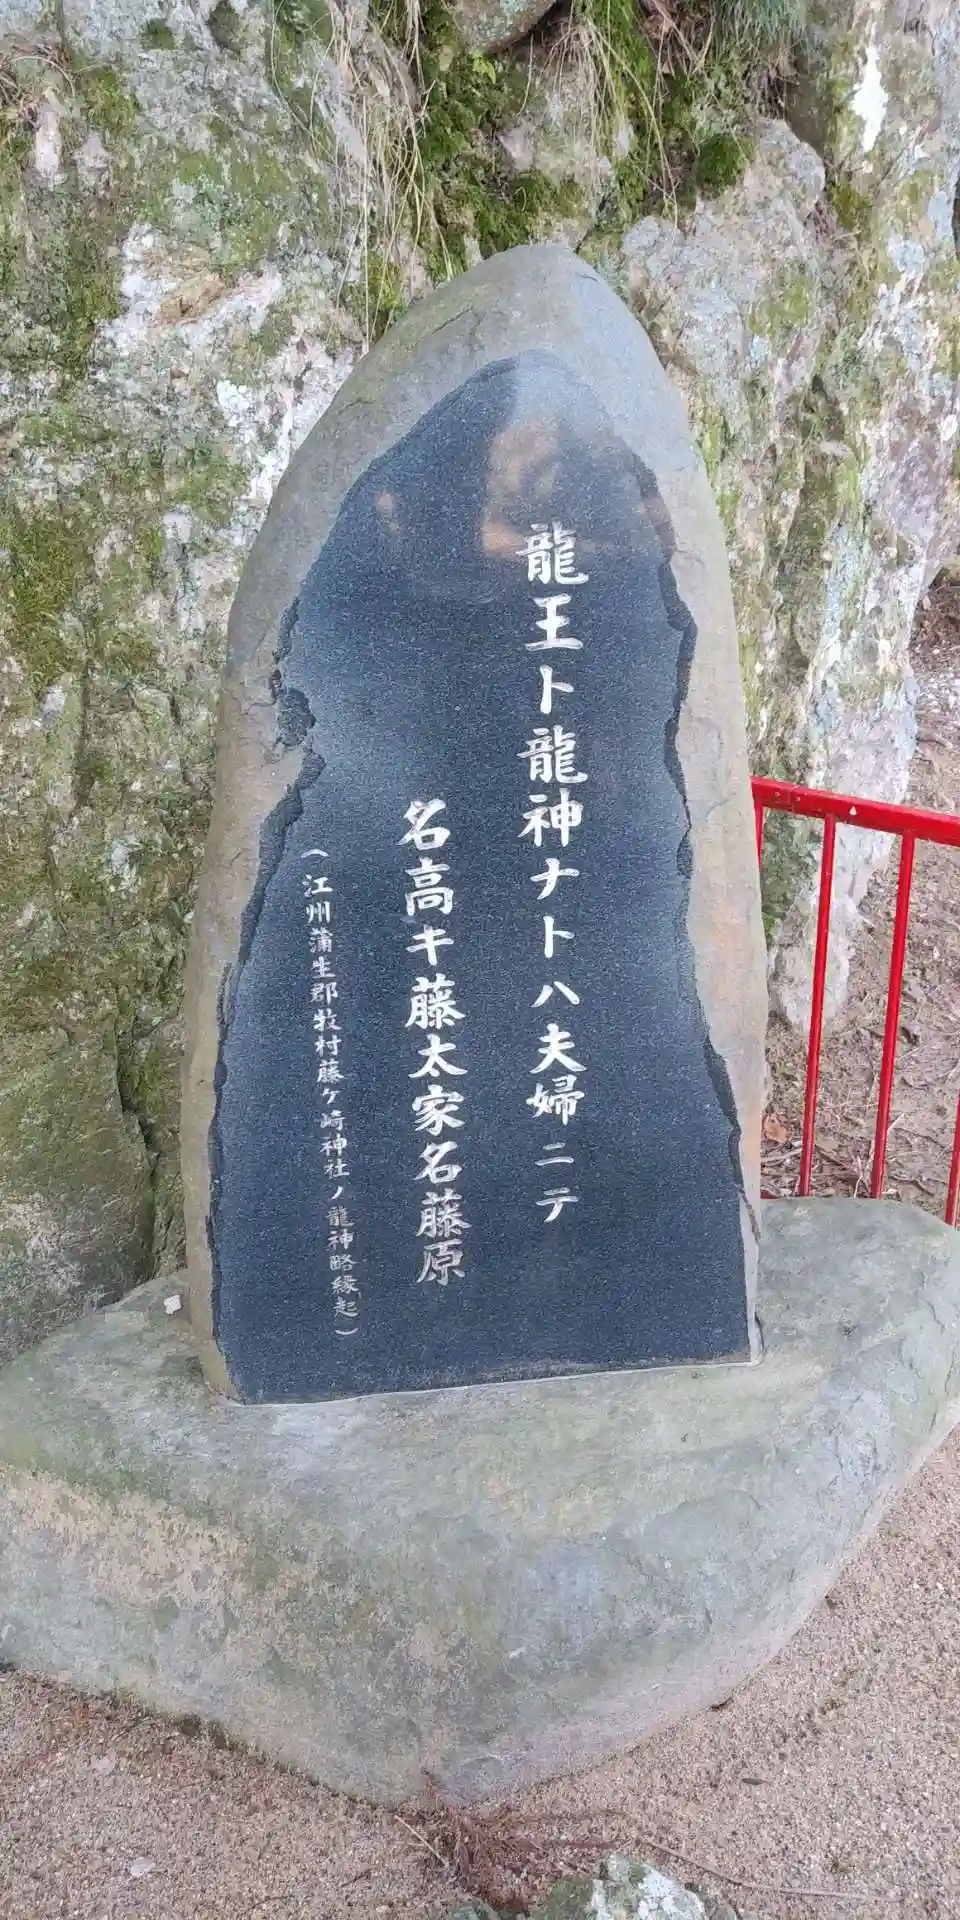 龍王ト龍神ナトハ夫婦ニテ
名高キ藤太家名藤原
(江州蒲生郡牧村藤ケ崎神社ノ龍神略縁起)